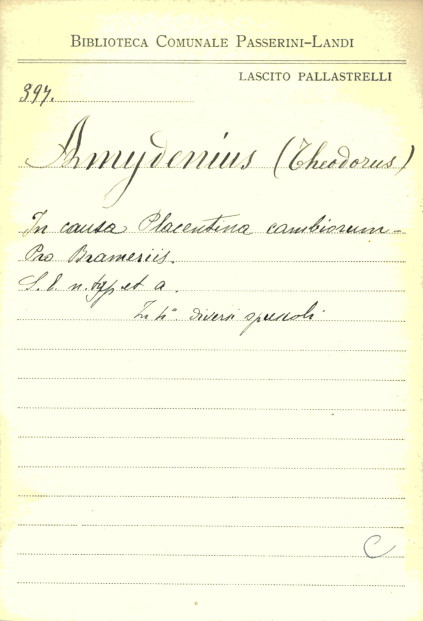 BIBLIOTECA COMUNALE PASSERINI-LANDI
LASCITO PALLASTRELLI
397.
Amydenius (Theodorus)
In causa Placentina cambiorum -
Pro Brameriis.
S. l. n. typ. et a.
In 4° diversi opuscoli
C